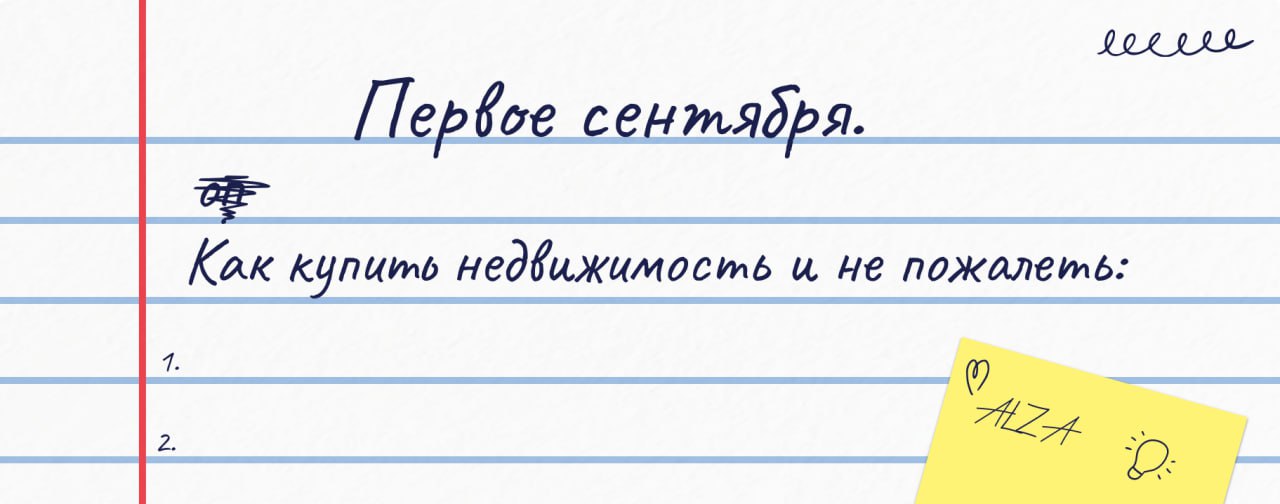 Первое сентября.
Как купить недвижимость и не пожалеть:
1.
2.
ALZA